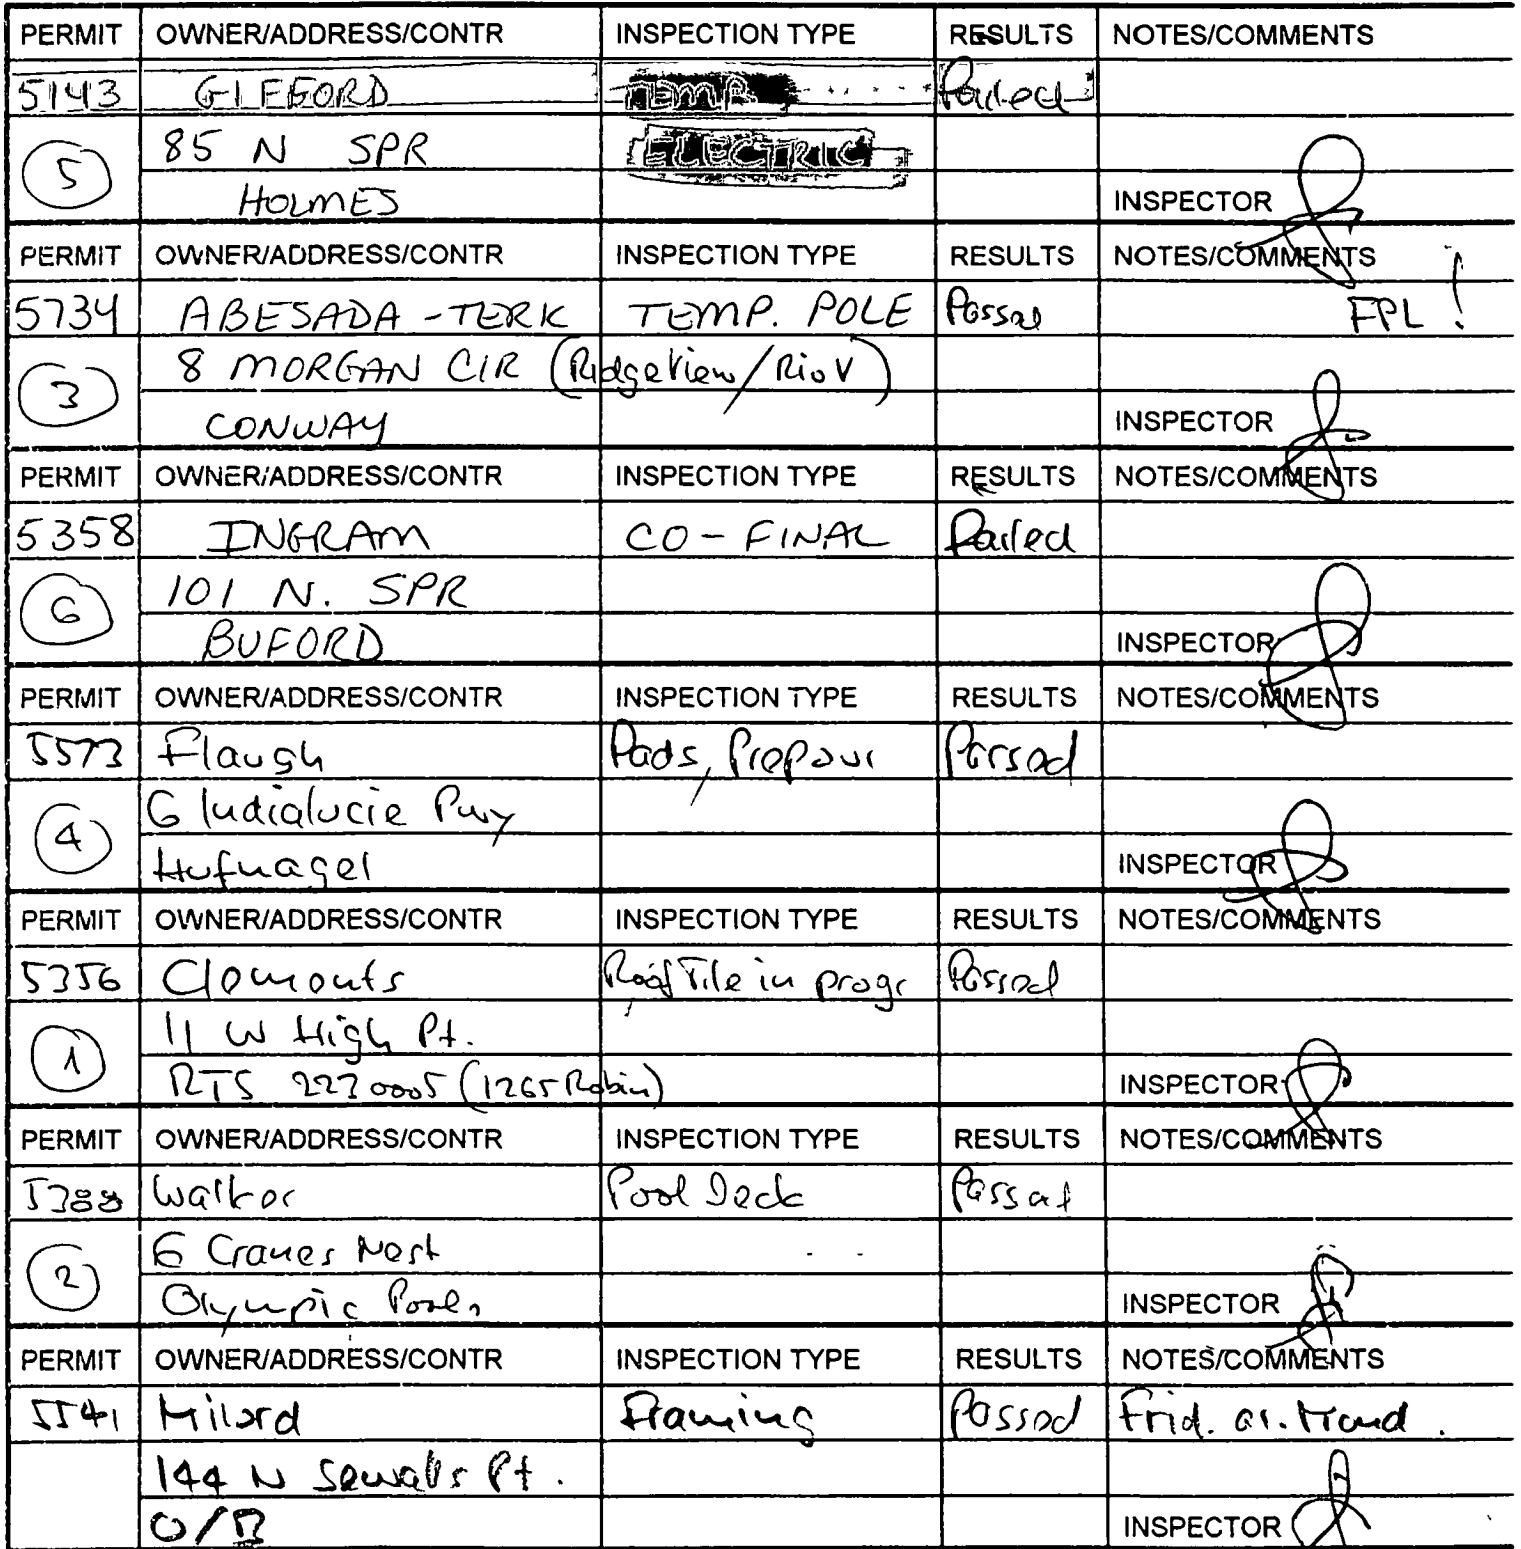 PERMIT OWNER/ADDRESS/CONTR INSPECTION TYPE RESULTS NOTES/COMMENTS
5143 GIFFORD TEMP. Failed
5 85 N SPR ELECTRIC
HOLMES INSPECTOR
PERMIT OWNER/ADDRESS/CONTR INSPECTION TYPE RESULTS NOTES/COMMENTS
5734 ABESADA-TERK TEMP. POLE Passed FPL!
3 8 MORGAN CIR (Ridgeview/Rio V)
CONWAY INSPECTOR
PERMIT OWNER/ADDRESS/CONTR INSPECTION TYPE RESULTS NOTES/COMMENTS
5358 INGRAM CO-FINAL Failed
6 101 N. SPR
BUFORD INSPECTOR
PERMIT OWNER/ADDRESS/CONTR INSPECTION TYPE RESULTS NOTES/COMMENTS
5573 Flaugh Pads, Prepour Passed
4 6 Indialucie Pwy
Hufnagel INSPECTOR
PERMIT OWNER/ADDRESS/CONTR INSPECTION TYPE RESULTS NOTES/COMMENTS
5356 Clements Roof Tile in progr Passed
1 11 W High Pt.
RTS 2230005 (1265 Robin) INSPECTOR
PERMIT OWNER/ADDRESS/CONTR INSPECTION TYPE RESULTS NOTES/COMMENTS
5388 Walker Pool Deck Passed
2 6 Cranes Nest
Olympic Pools INSPECTOR
PERMIT OWNER/ADDRESS/CONTR INSPECTION TYPE RESULTS NOTES/COMMENTS
5541 Milord Framing Passed Frid. or. Mond.
144 N Sewalls Pt.
O/B INSPECTOR